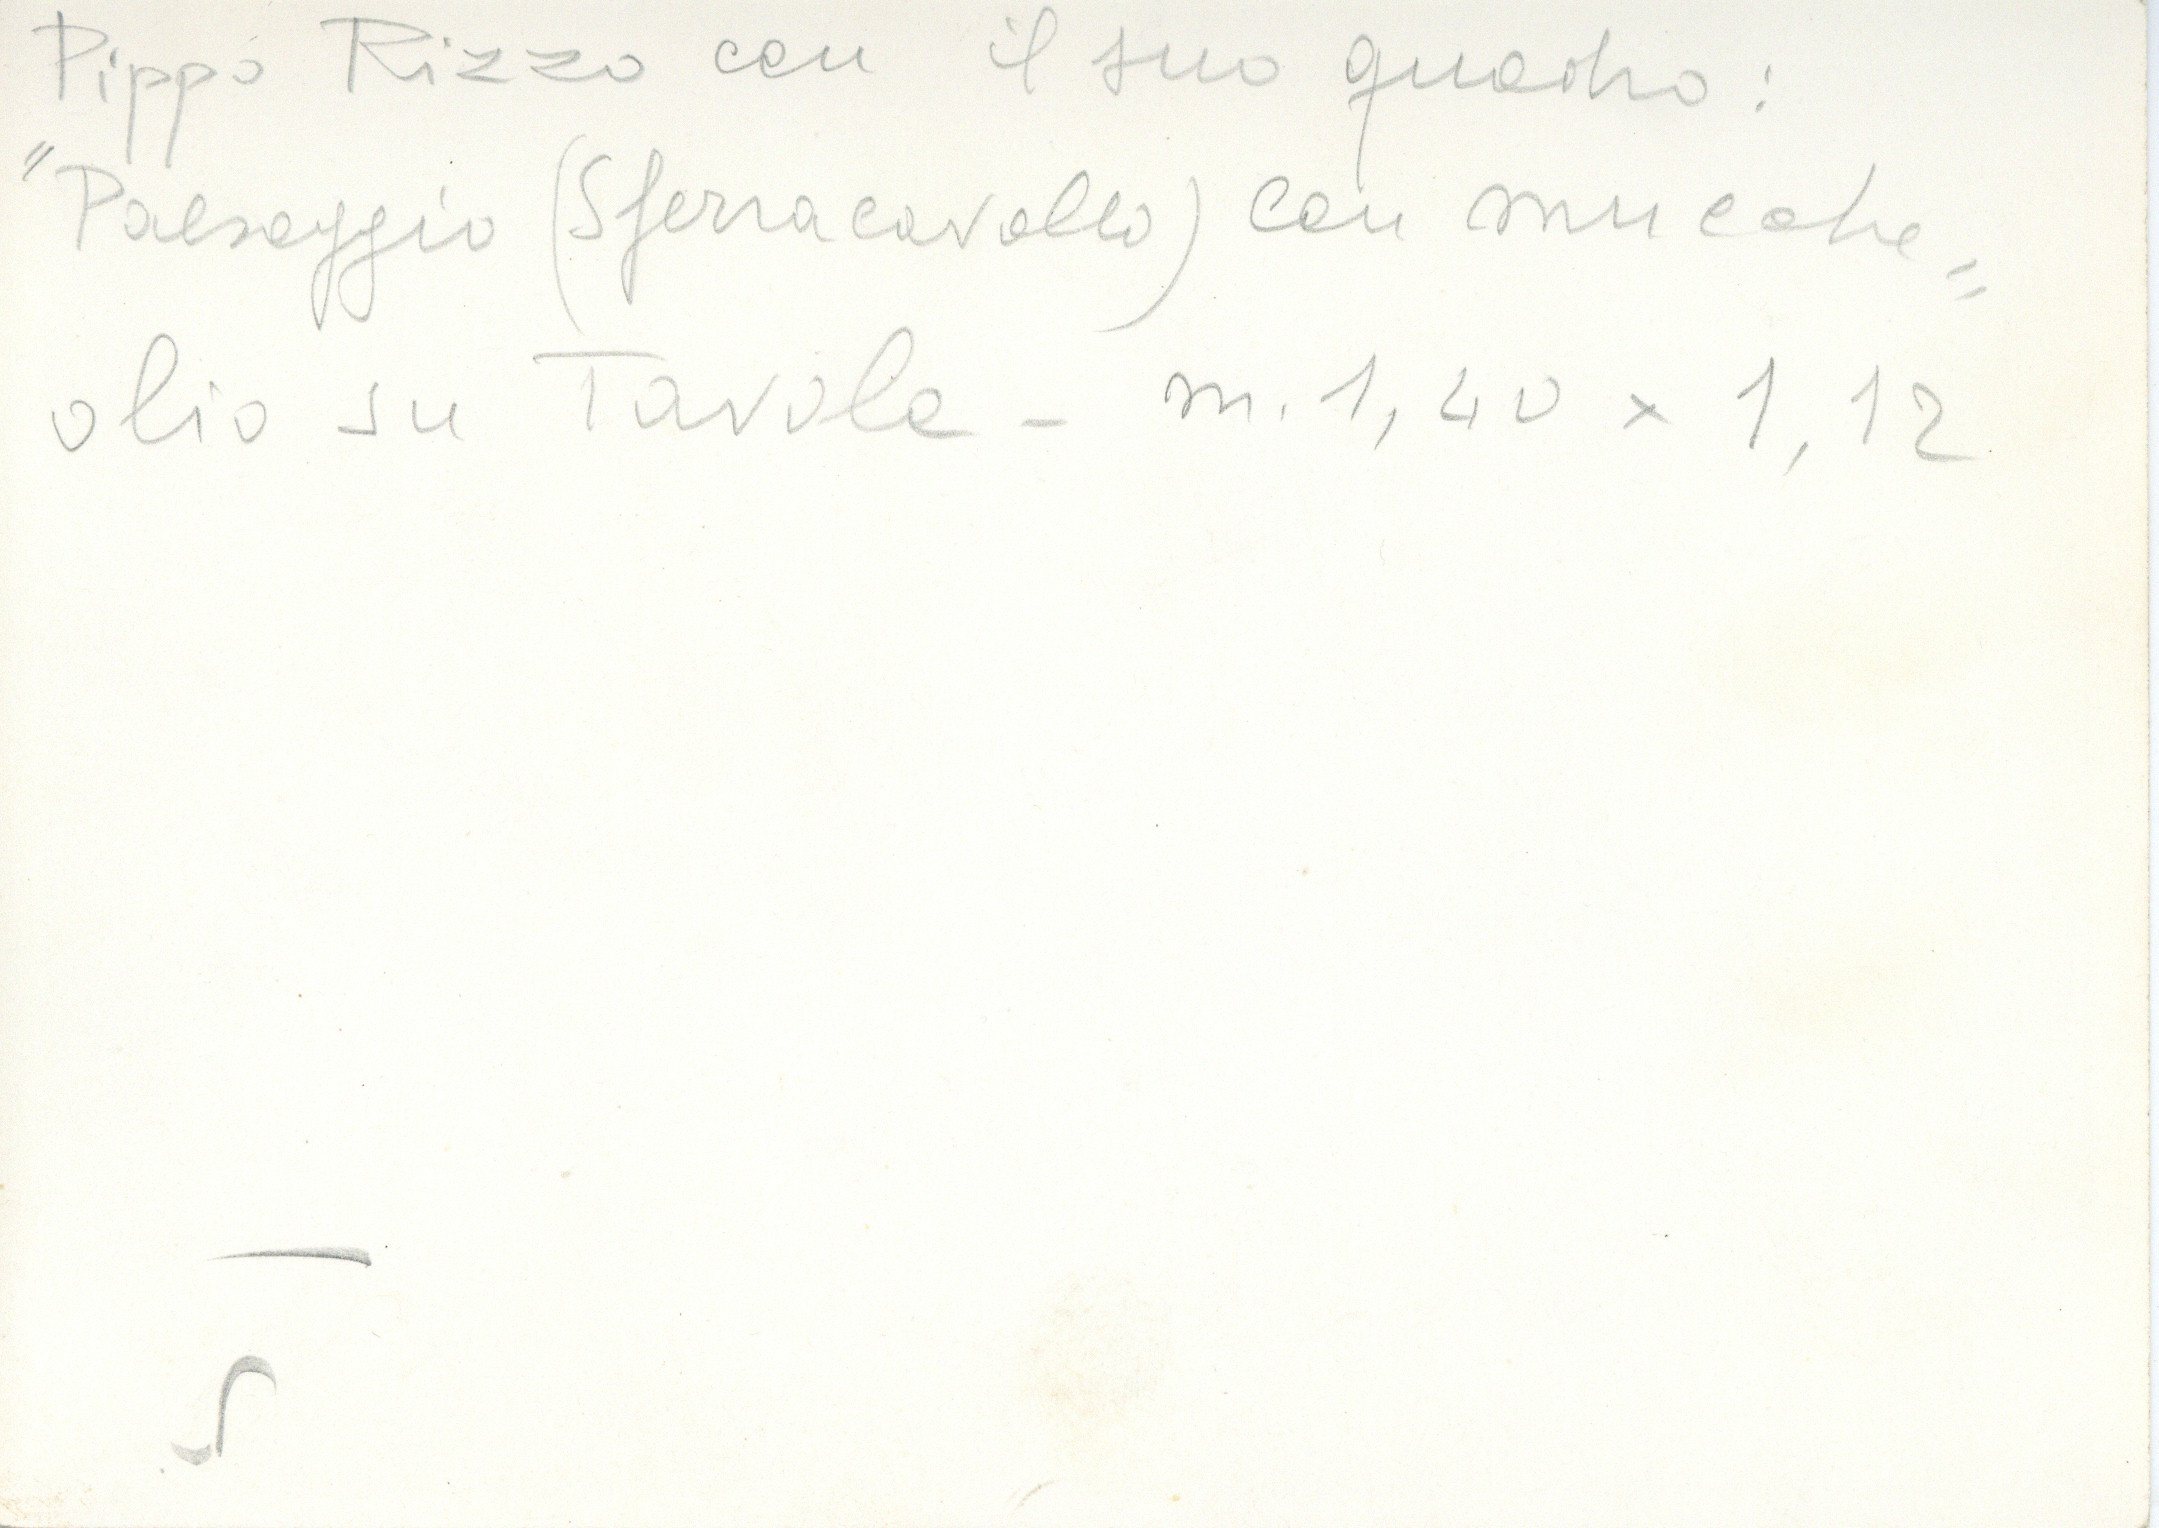 Pippo Rizzo con il suo quadro:
"Paesaggio (Sferracavallo) con mucche"
olio su Tavola - m. 1,40 x 1,12